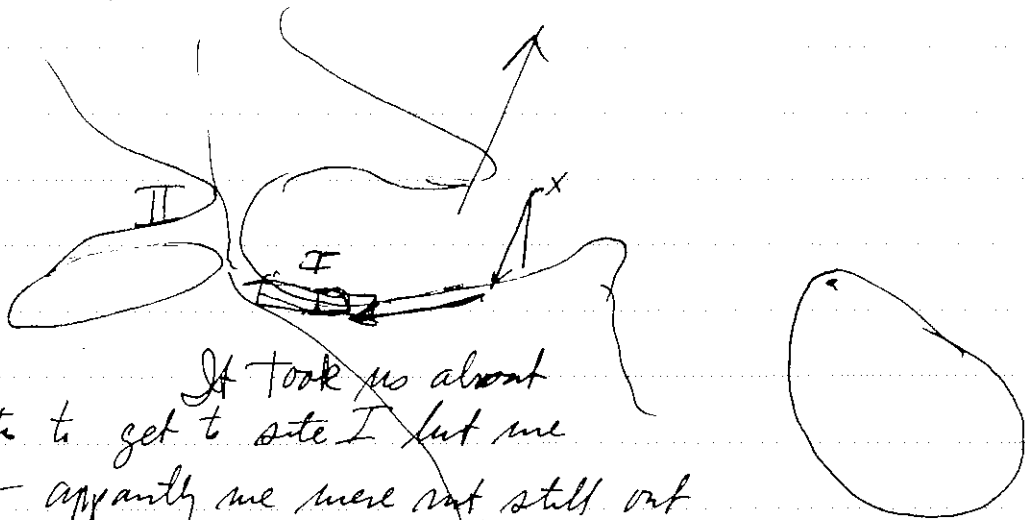 x
II
I
It took us about
to get to site I but we
- appantly we were not still out